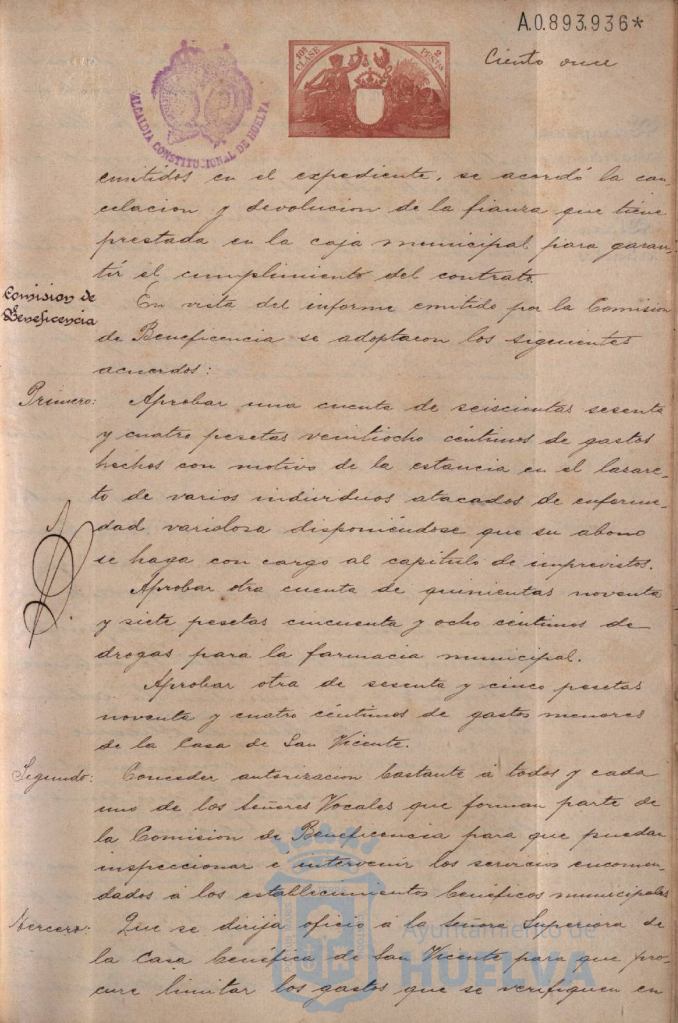 A.0.893,936*
Ciento once
10ª CLASE
2 PESETAS
ALCALDIA CONSTITUCIONAL DE HUELVA
emitidos en el expediente, se acordó la can-
celacion y devolucion de la fianza que tiene
prestada en la caja municipal para garan-
tir el cumplimiento del contrato.
Comision de
Beneficencia
En vista del informe emitido por la Comision
de Beneficencia se adoptaron los siguientes
acuerdos:
Primero: Aprobar una cuenta de seiscientas sesenta
y cuatro pesetas veintiocho céntimos de gastos
hechos con motivo de la estancia en el lazare-
to de varios individuos atacados de enferme-
dad variolosa disponiéndose que su abono
se haga con cargo al capitulo de imprevistos.
Aprobar otra cuenta de quinientas noventa
y siete pesetas cincuenta y ocho céntimos de
drogas para la farmacia municipal.
Aprobar otra de sesenta y cinco pesetas
noventa y cuatro céntimos de gastos menores
de la Casa de San Vicente.
Segundo: Conceder autorizacion bastante á todos y cada
uno de los Señores Vocales que forman parte de
la Comision de Beneficencia para que puedan
inspeccionar é intervenir los servicios encomen-
dados á los establecimientos benéficos municipales
Tercero: Que se dirija oficio á la Señora Superiora de
la Casa benéfica de San Vicente para que pro-
cure limitar los gastos que se verifiquen en
Ayuntamiento de
HUELVA